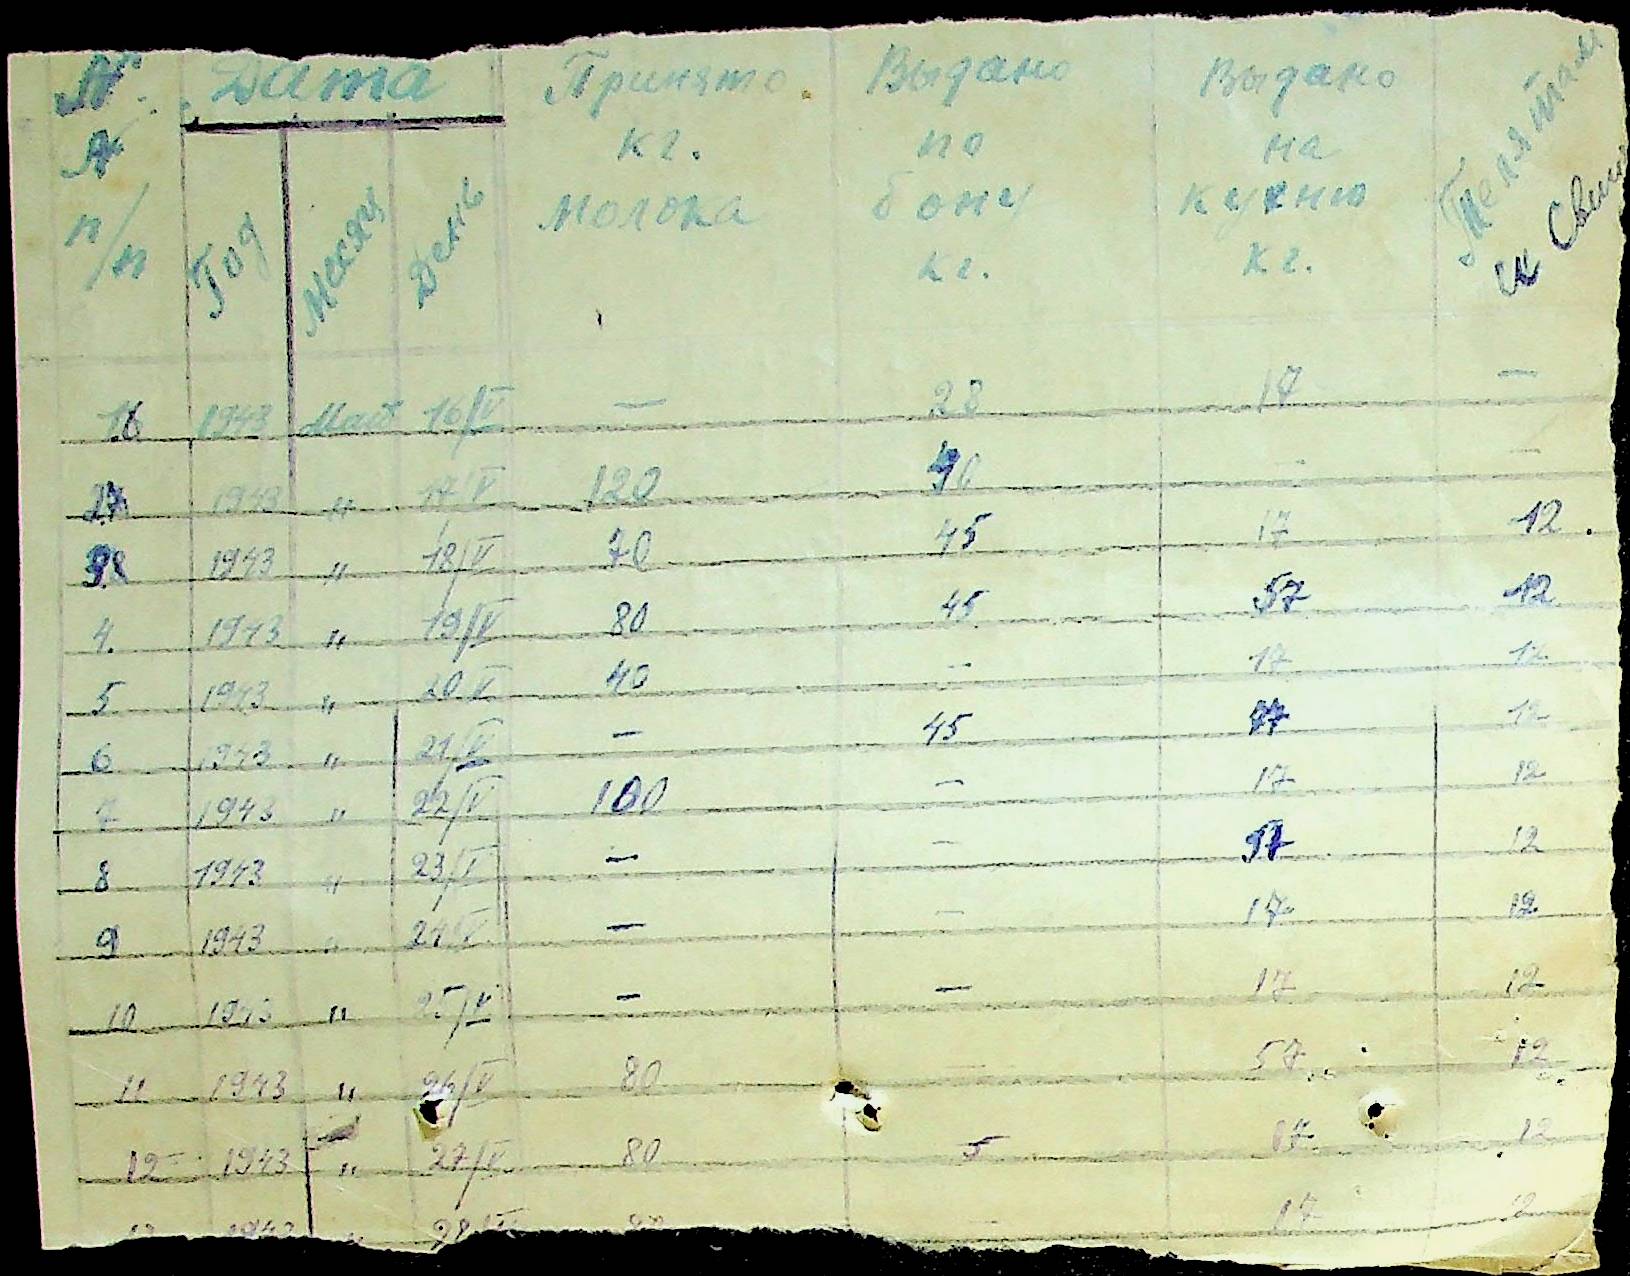 № Дата Принято Выдано Выдано Телятам
№ кг. по на и Свин
п/п Год Месяц День молока бону кухню
кг. кг.
16 1943 Май 16/V — 28 17 —
1943 " 17/V 120 — —
1943 " 18/V 70 45 17 12.
4. 1943 " 19/V 80 45 57 12
5 1943 " 20/V 40 — 17 12
6 1943 " 21/V — 45 12
7 1943 " 22/V 100 — 17 12
8 1943 " 23/V — — 57 12
9 1943 " 24/V — — 17 12
10 1943 " 25/V — — 17 12
11 1943 " 26/V 80 — 57 12
12 1943 " 27/V 80 5 17 12
13 1943 " 28/V — 17 12